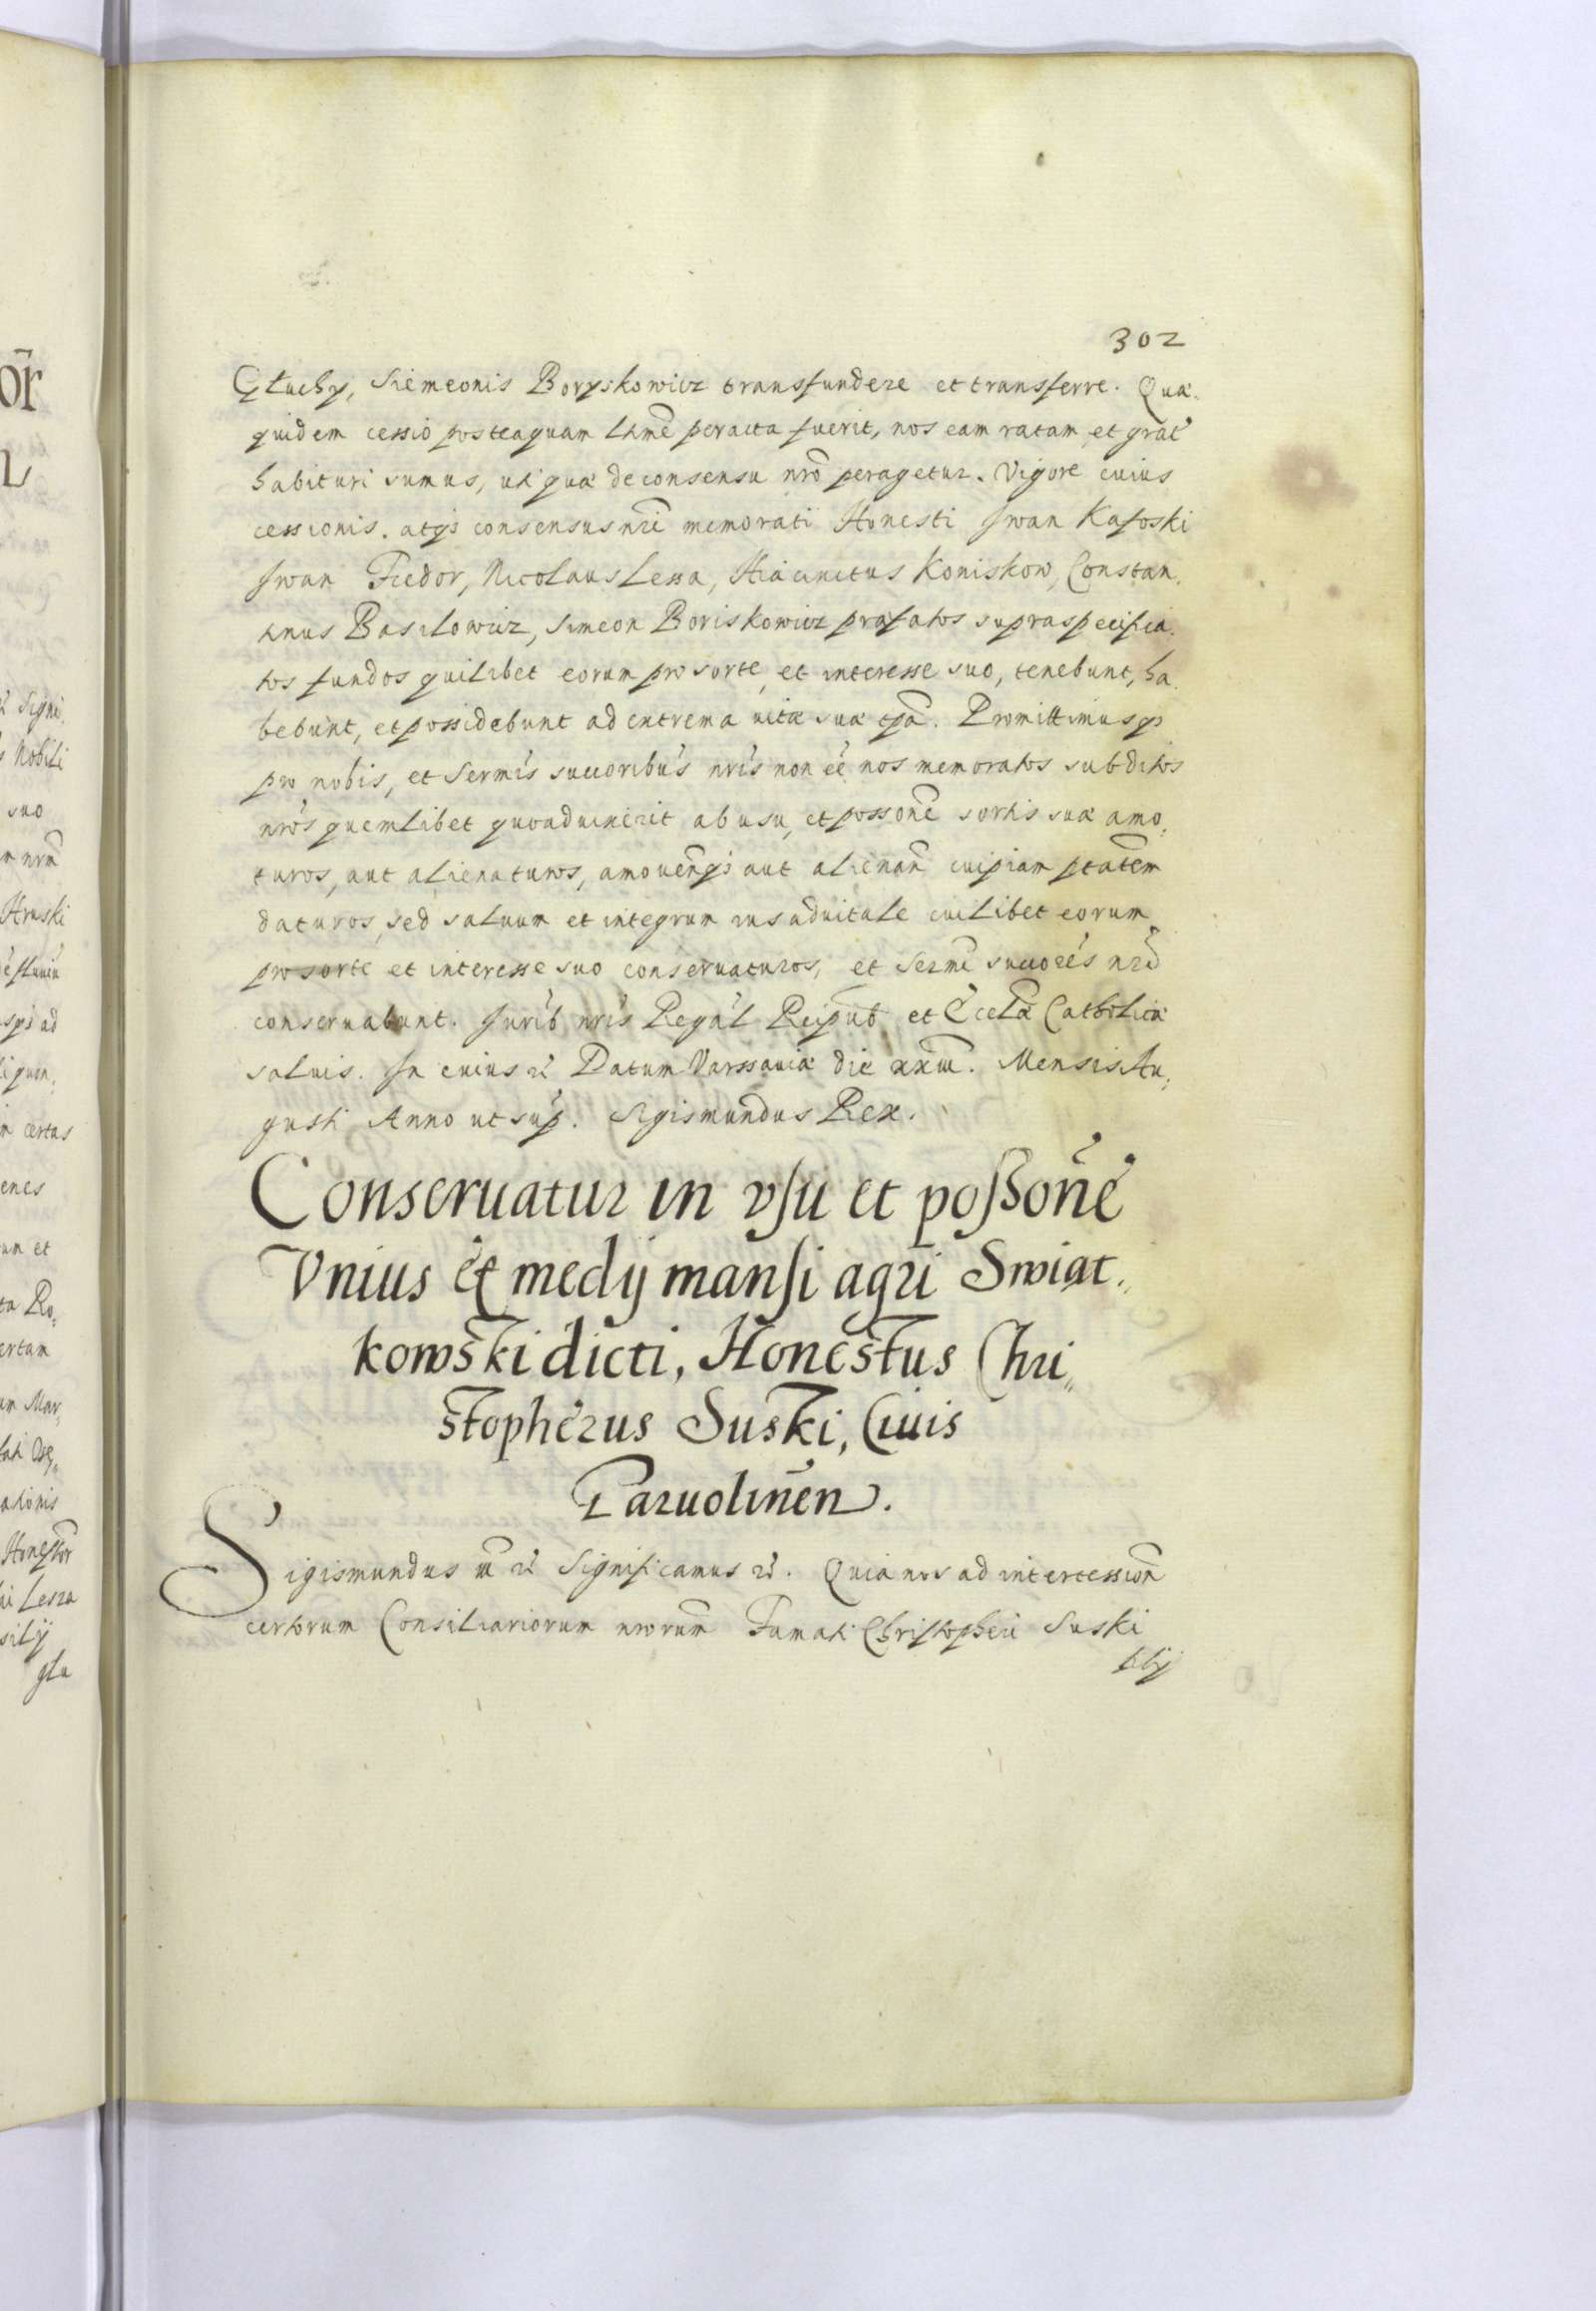 302
Głuchy, Siemeonis Boryskowicz transfundere et transferre. Quæ
quidem cessio posteaquam ltmè peracta fuerit, nos eam ratam et grat
habituri sumus, uti quæ de consensu nrõ peragetur. Vigore cuius
cessionis. atqз consensus nrĩ memorati Honesti Jwan Kafoski
Jwan Fiedor, Nicolaus Lessa, Hiacinctus Koniskow, Constan,
tinus Basilowicz, Simeon Boriskowicz præfatos supraspecifica,
tos fundos quilibet eorum pro sorte, et interesse suo, tenebunt, ha,
bebunt, et possidebunt ad extrema uitæ suæ tpã. Promittimusqз
pro nobis, et Sermis succoribus nris non eẽ nos memoratos subditos
nros quemlibet quoaduixerit ab usu, et possone sortis suæ amo,
turos, aut alienaturos, amouenqз aut alienan cuipiam ptatem
daturos, sed saluum et integrum ius aduitale cuilibet eorum
pro sorte et interesse suo conseruaturos, et Sermi succores nri
conseruabunt. Jurib nris Regal Reipub et Eccłæ Catholicæ
saluis. In cuius rei Datum Varssauiæ die xxiii. Mensis Au,
gusti Anno ut sup. Sigismundus Rex.
Conseruatur in vsu et possone
Vnius et medij mansi agri Swiat,,
kowski dicti, Honestus Chri,,
stopherus Suski, Ciuis
Paruolinen.
Sigismundus iii rc Significamus rc. Quia nos ad intercession
certorum Consiliariorum nrorum Famati Christopheri Suski